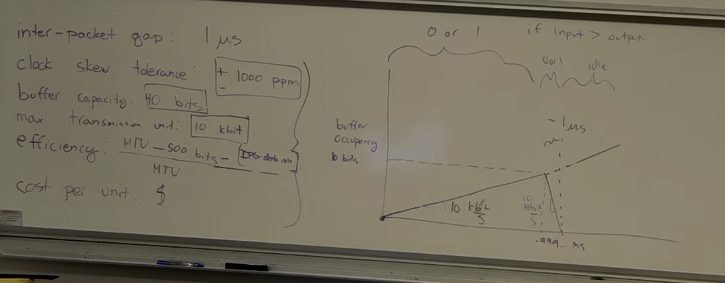 inter-packet gap: 1 μs
clock skew tolerance: ± 1000 ppm
buffer capacity: 40 bits
max transmission unit: 10 kbit
efficiency: MTU - 500 bits -
MTU
cost per unit: $
0 or 1
if input > output
0 or 1
idle
~1μs
buffer
occupency
10 bits
10 kbit/s
10
s
.999